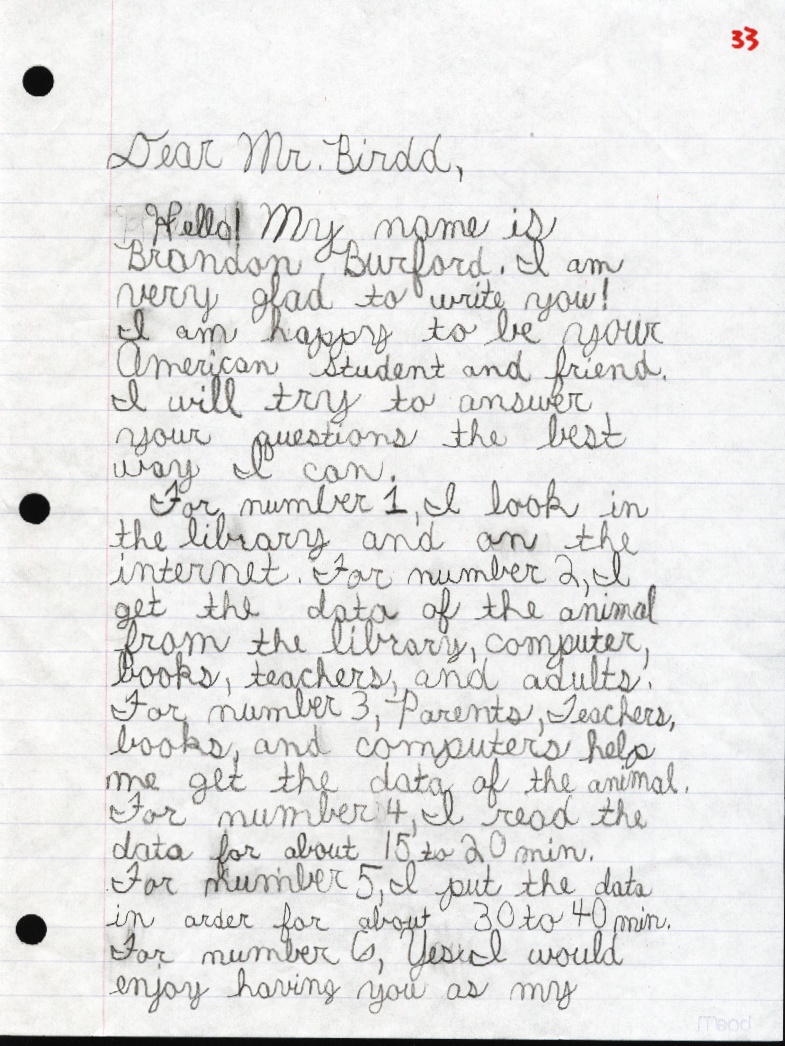 33
Dear Mr. Birdd,
Hello! My name is
Brandon Burford. I am
very glad to write you!
I am happy to be your
American student and friend.
I will try to answer
your questions the best
way I can.
For number 1, I look in
the library and on the
internet. For number 2, I
get the data of the animal
from the library, computer,
books, teachers, and adults.
For number 3, Parents, Teachers,
books, and computers help
me get the data of the animal.
For number 4, I read the
data for about 15 to 20 min.
For number 5, I put the data
in order for about 30 to 40 min.
For number 6, Yes I would
enjoy having you as my
Mead